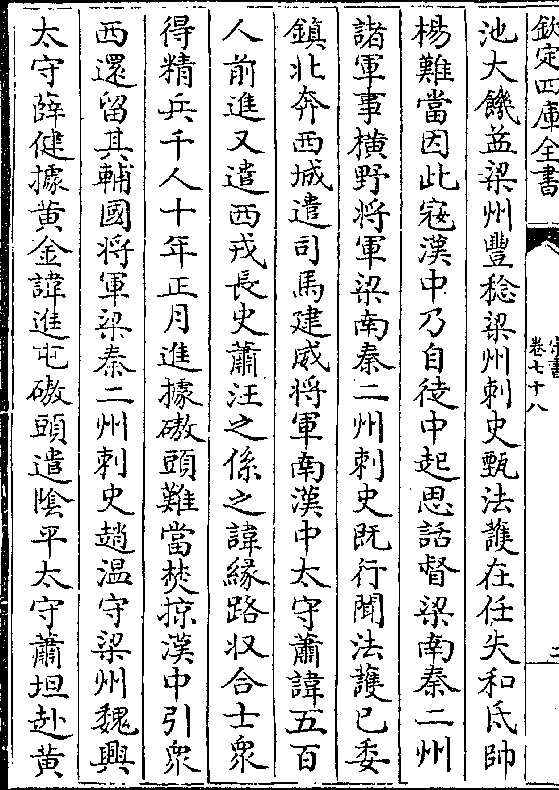 欽定四庫全書
宋書
卷七十八
二
池大饑益梁州豐稔梁州刺史甄法護在任失和氐帥
楊難當因此寇漢中乃自徒中起思話督梁南秦二州
諸軍事横野将軍梁南秦二州刺史既行聞法護已委
鎮北奔西城遣司馬建威将軍南漢中太守蕭諱五百
人前進又遣西戎長史蕭汪之係之諱緣路収合士衆
得精兵千人十年正月進據磝頭難當焚掠漢中引衆
西還留其輔國将軍梁秦二州刺史趙温守梁州魏興
太守薛健據黄金諱進屯磝頭遣陰平太守蕭坦赴黄